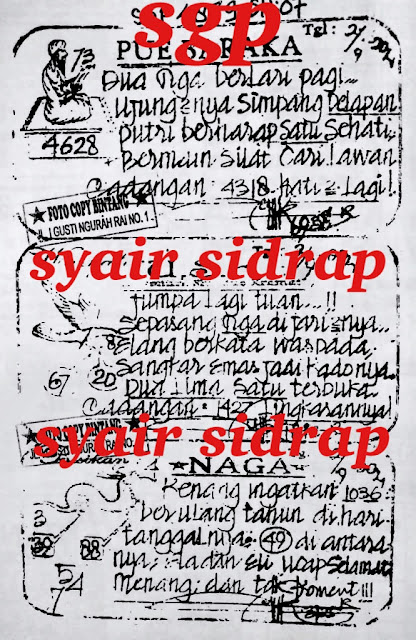 sgp
Tgl:
PUE SARAKA
73
Dua Tiga berlari pagi...
Ujung²nya Simpang Delapan
Putri berharap Satu Sehati..
4628
Bermain Silat Cari Lawan
Cadangan: 4318 hati² Lagi!
FOTO COPY BINTANG
JL. I GUSTI NGURAH RAI NO. 1
syair sidrap
Jumpa lagi tuan...!!
Sepasang tiga di jari²nya..
8
Elang berkata waspada
67 20
Sangkar Emas jadi kadonya.
Dua Lima Satu terbuka
Cadangan: 1427
FOTO COPY BINTANG
syair sidrap
NAGA
Kenang ingatkan 1036
berulang tahun dihari
3
tanggalnya: 49 di antara
nya; Ladan Eli Ucap Selamat
Menang; dan tak koment!!!